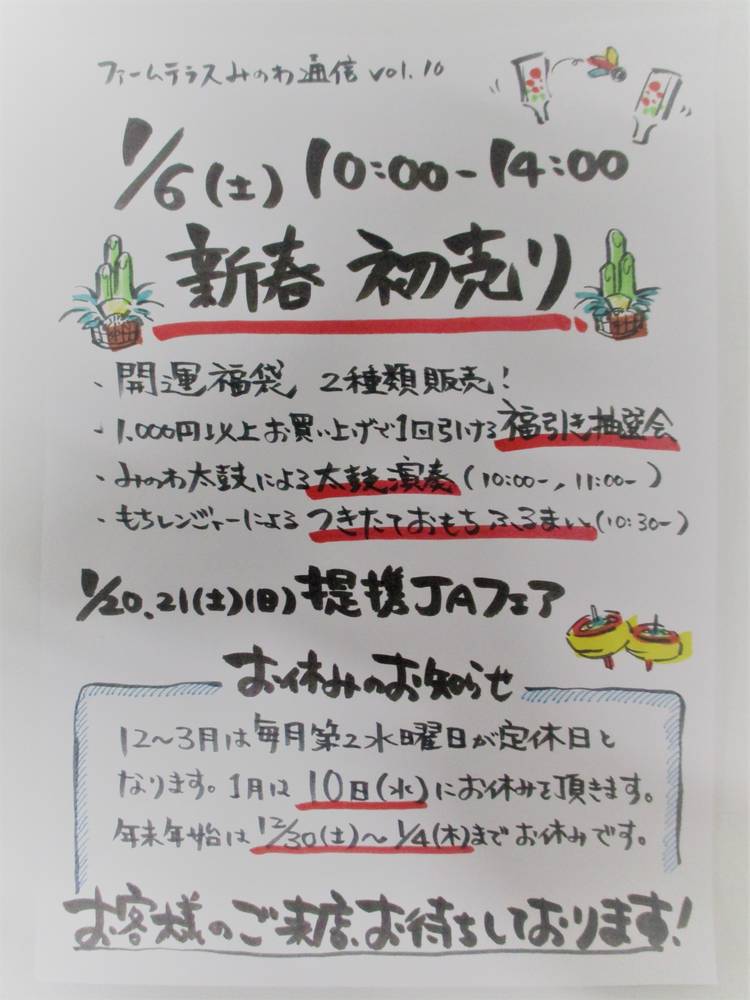 ファームテラスみのわ通信 vol.10
1/6(土) 10:00-14:00
新春 初売り
・開運福袋 2種類販売!
・1,000円以上お買い上げで1回引ける福引き抽選会
・みのわ太鼓による太鼓演奏(10:00-, 11:00-)
・もちレンジャーによるつきたておもちふるまい(10:30-)
1/20.21(土)(日)提携JAフェア
お休みのお知らせ
12~3月は毎月第2水曜日が定休日と
なります。1月は10日(水)にお休みを頂きます。
年末年始は12/30(土)~1/4(木)までお休みです。
お客様のご来店、お待ちしております!